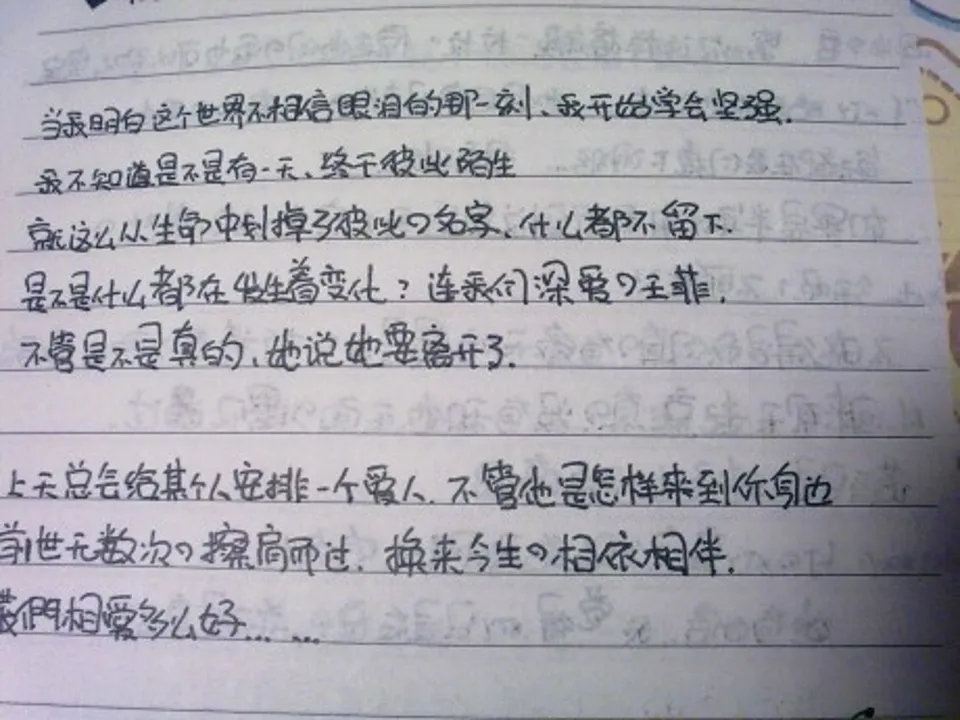 当我明白这个世界不相信眼泪的那一刻、我开始学会坚强.
我不知道是不是有一天、终于彼此陌生
就这么从生命中划掉了彼此の名字、什么都不留下.
是不是什么都在发生着变化?连我们深爱の王菲,
不管是不是真的、她说她要离开了.
上天总会给某个人安排一个爱人.不管他是怎样来到你身边
前世无数次の擦肩而过.换来今生の相依相伴.
我們相爱多么好... ...